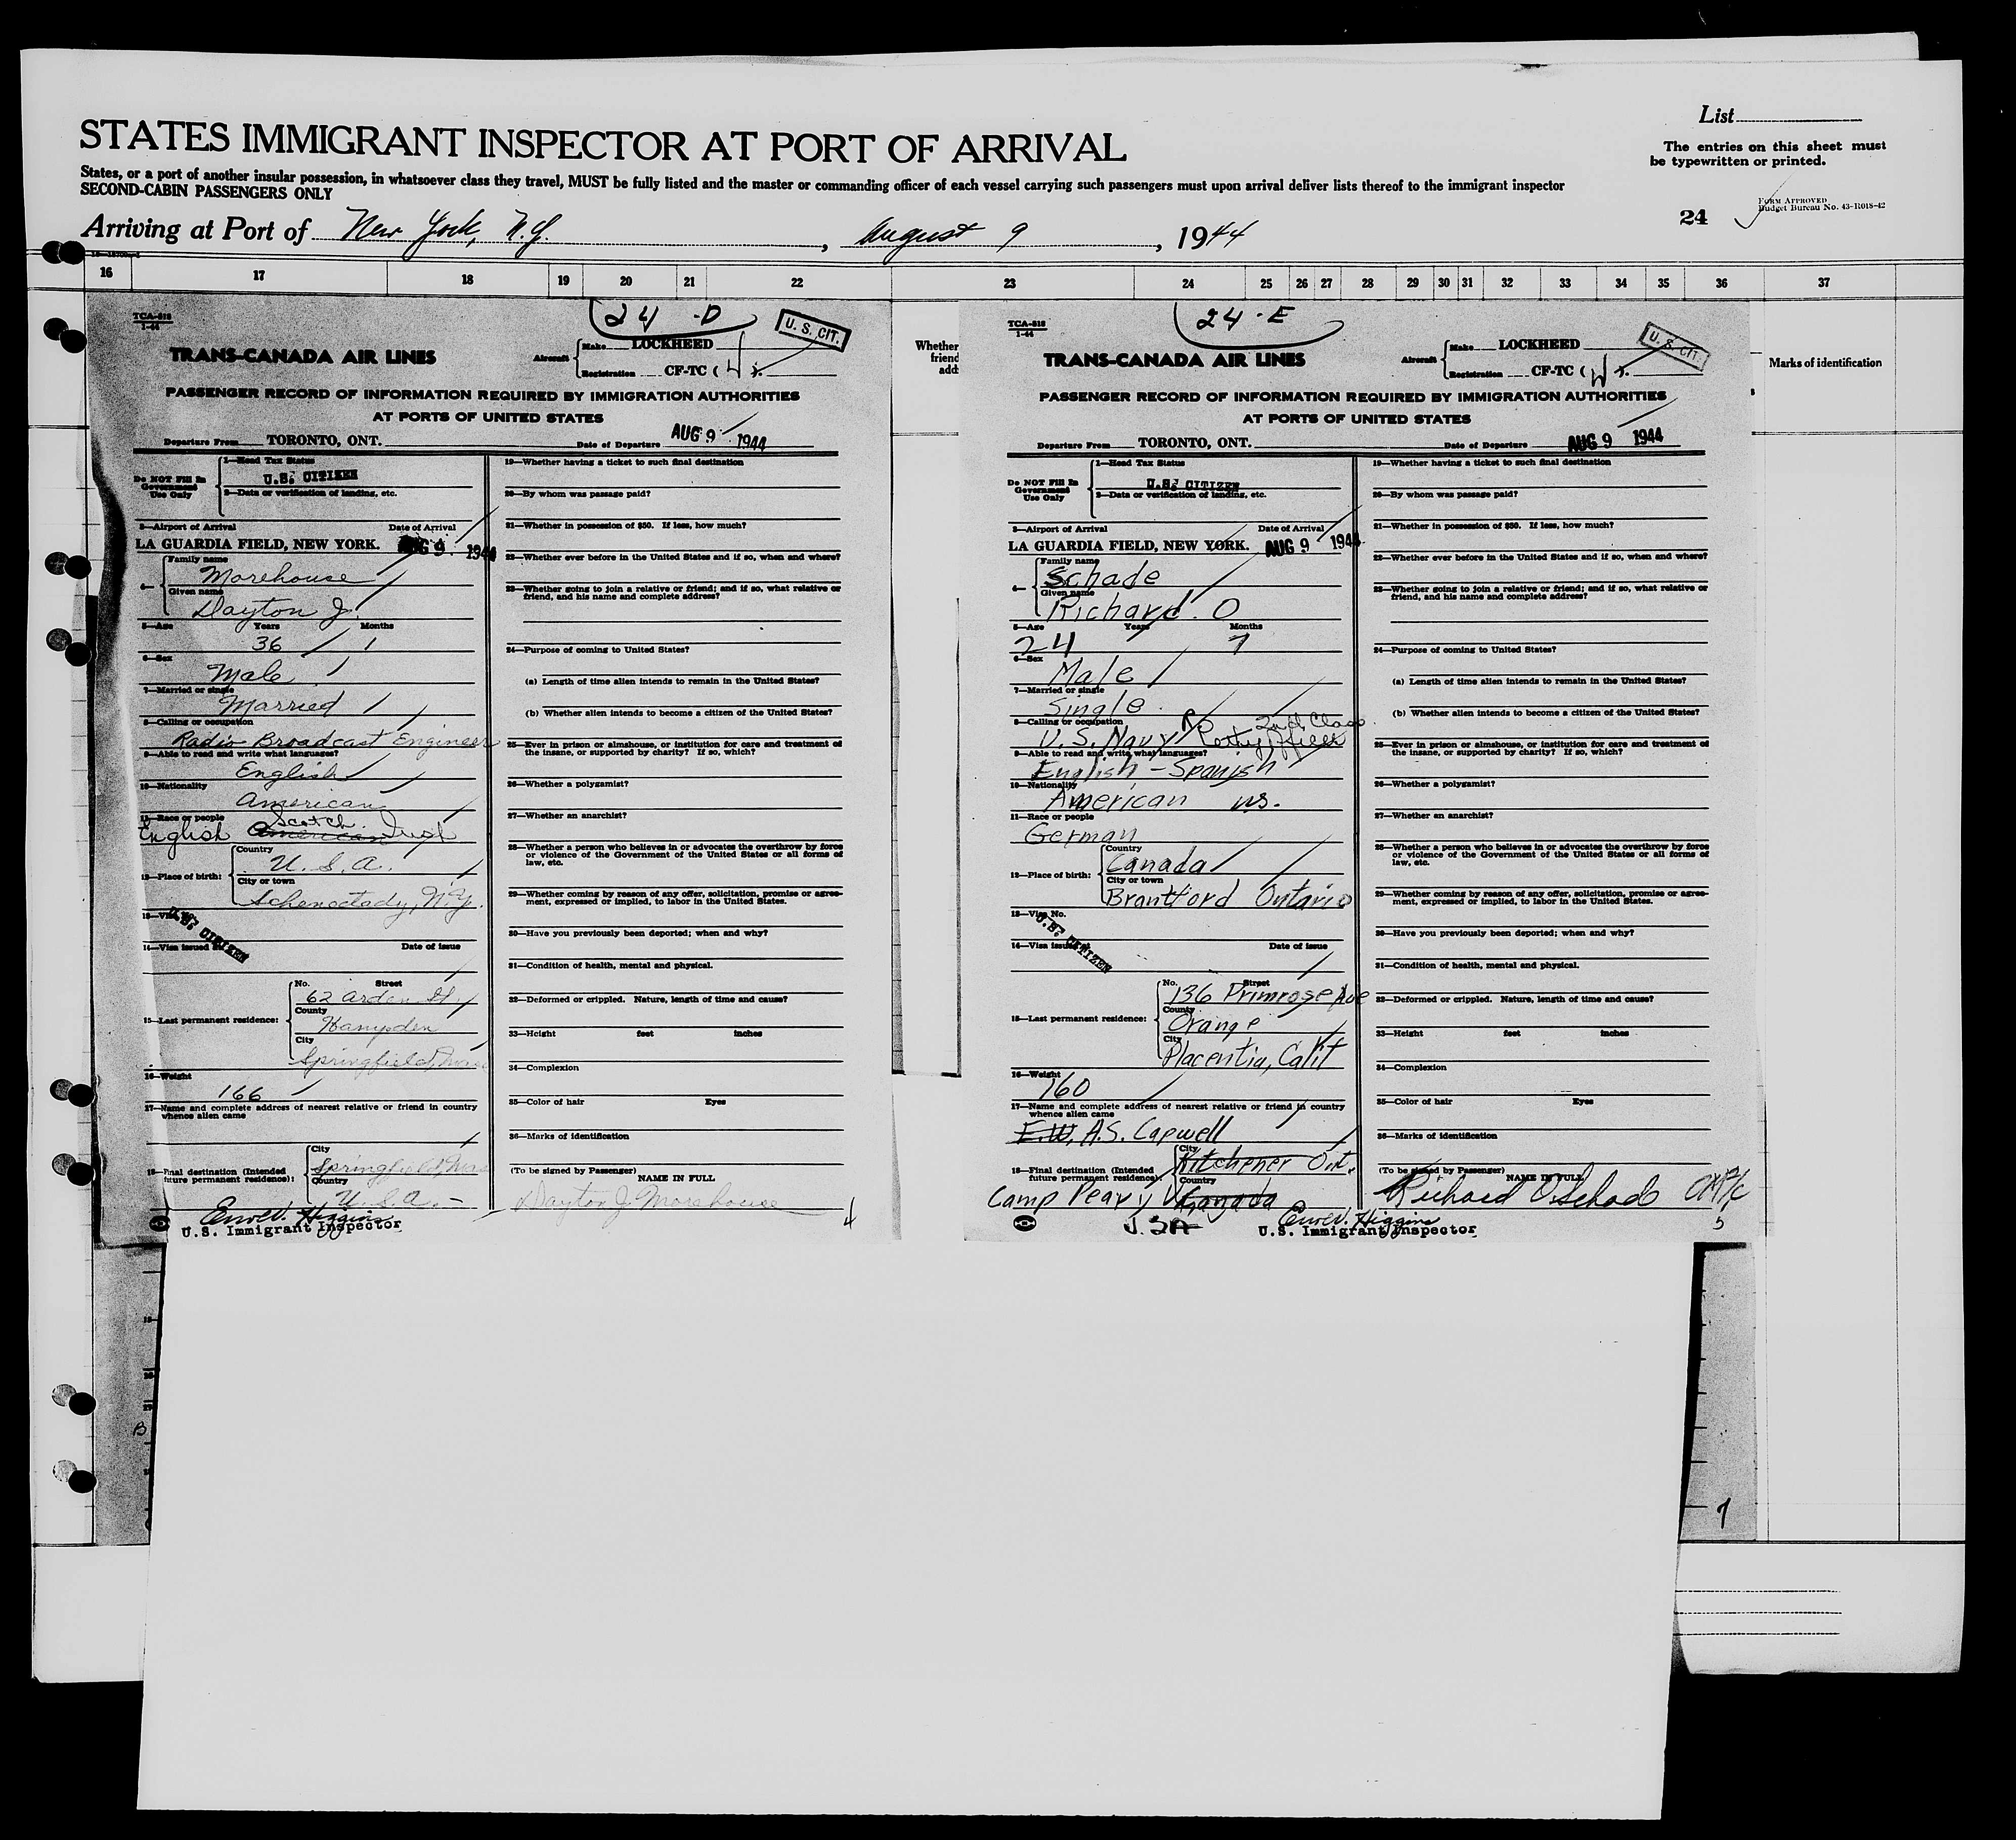 STATES IMMIGRANT INSPECTOR AT PORT OF ARRIVAL
States, or a port of another insular possession, in whatsoever class they travel, MUST be fully listed and the master or commanding officer of each vessel carrying such passengers must upon arrival deliver lists thereof to the immigrant inspector
SECOND-CABIN PASSENGERS ONLY
List
The entries on this sheet must
be typewritten or printed.
FORM APPROVED
Budget Bureau No. 43-R018-42
24
Arriving at Port of New York, N.Y. , August 9 , 1944
16 17 18 19 20 21 22 23 24 25 26 27 28 29 30 31 32 33 34 35 36 37
Whether
friend
add
Marks of identification
TCA-818
1-44
24 -D
U. S. CIT.
TRANS-CANADA AIR LINES
Aircraft
Make LOCKHEED
Registration CF-TC ( W ).
PASSENGER RECORD OF INFORMATION REQUIRED BY IMMIGRATION AUTHORITIES
AT PORTS OF UNITED STATES
Departure From TORONTO, ONT. Date of Departure AUG 9 1944
Do NOT Fill In
Government
Use Only
1—Head Tax Status
U.S. CITIZEN
2—Data or verification of landing, etc.
3—Airport of Arrival Date of Arrival
LA GUARDIA FIELD, NEW YORK. AUG 9 1944
4—
Family name
Morehouse
Given name
Dayton J.
5—Age Years Months
36 1
6—Sex
Male
7—Married or single
Married
8—Calling or occupation
Radio Broadcast Engineer
9—Able to read and write what languages?
English
10—Nationality
American
11—Race or people
Scotch
English American
12—Place of birth:
Country
U.S.A.
City or town
Schenectady, N.Y.
13—Visa No.
U.S. CITIZEN
14—Visa issued at Date of issue
15—Last permanent residence:
No. Street
62 Arden St
County
Hampden
City
Springfield, Mass
16—Weight
166
17—Name and complete address of nearest relative or friend in country
whence alien came
18—Final destination (Intended
future permanent residence):
City
Springfield, Mass
Country
U.S.A. -
Higgins
U.S. Immigrant Inspector
19—Whether having a ticket to such final destination
20—By whom was passage paid?
21—Whether in possession of $50. If less, how much?
22—Whether ever before in the United States and if so, when and where?
23—Whether going to join a relative or friend; and if so, what relative or
friend, and his name and complete address?
24—Purpose of coming to United States?
(a) Length of time alien intends to remain in the United States?
(b) Whether alien intends to become a citizen of the United States?
25—Ever in prison or almshouse, or institution for care and treatment of
the insane, or supported by charity? If so, which?
26—Whether a polygamist?
27—Whether an anarchist?
28—Whether a person who believes in or advocates the overthrow by force
or violence of the Government of the United States or all forms of
law, etc.
29—Whether coming by reason of any offer, solicitation, promise or agree-
ment, expressed or implied, to labor in the United States.
30—Have you previously been deported; when and why?
31—Condition of health, mental and physical.
32—Deformed or crippled. Nature, length of time and cause?
33—Height feet inches
34—Complexion
35—Color of hair Eyes
36—Marks of identification
(To be signed by Passenger)
NAME IN FULL
Dayton J. Morehouse
4
TCA-818
1-44
24 - E
U. S. CIT.
TRANS-CANADA AIR LINES
Aircraft
Make LOCKHEED
Registration CF-TC ( W ).
PASSENGER RECORD OF INFORMATION REQUIRED BY IMMIGRATION AUTHORITIES
AT PORTS OF UNITED STATES
Departure From TORONTO, ONT. Date of Departure AUG 9 1944
Do NOT Fill In
Government
Use Only
1—Head Tax Status
U.S. CITIZEN
2—Data or verification of landing, etc.
3—Airport of Arrival Date of Arrival
LA GUARDIA FIELD, NEW YORK. AUG 9 1944
4—
Family name
Schade
Given name
Richard. O
5—Age Years Months
24 7
6—Sex
Male
7—Married or single
Single
8—Calling or occupation
2nd Class
U.S. Navy Petty Officer
9—Able to read and write what languages?
English - Spanish
10—Nationality
American us.
11—Race or people
German
12—Place of birth:
Country
Canada
City or town
Brantford Ontario
13—Visa No.
U.S. CITIZEN
14—Visa issued at Date of issue
15—Last permanent residence:
No. Street
136 Primrose Ave
County
Orange
City
Placentia, Calif
16—Weight
160
17—Name and complete address of nearest relative or friend in country
whence alien came
E.W. A.S. Capwell
18—Final destination (Intended
future permanent residence):
City
Kitchener Ont.
Country
Camp Peary V Canada
U.S.A
Higgins
U.S. Immigrant Inspector
19—Whether having a ticket to such final destination
20—By whom was passage paid?
21—Whether in possession of $50. If less, how much?
22—Whether ever before in the United States and if so, when and where?
23—Whether going to join a relative or friend; and if so, what relative or
friend, and his name and complete address?
24—Purpose of coming to United States?
(a) Length of time alien intends to remain in the United States?
(b) Whether alien intends to become a citizen of the United States?
25—Ever in prison or almshouse, or institution for care and treatment of
the insane, or supported by charity? If so, which?
26—Whether a polygamist?
27—Whether an anarchist?
28—Whether a person who believes in or advocates the overthrow by force
or violence of the Government of the United States or all forms of
law, etc.
29—Whether coming by reason of any offer, solicitation, promise or agree-
ment, expressed or implied, to labor in the United States.
30—Have you previously been deported; when and why?
31—Condition of health, mental and physical.
32—Deformed or crippled. Nature, length of time and cause?
33—Height feet inches
34—Complexion
35—Color of hair Eyes
36—Marks of identification
(To be signed by Passenger)
NAME IN FULL
Richard O Schade
5
B
7